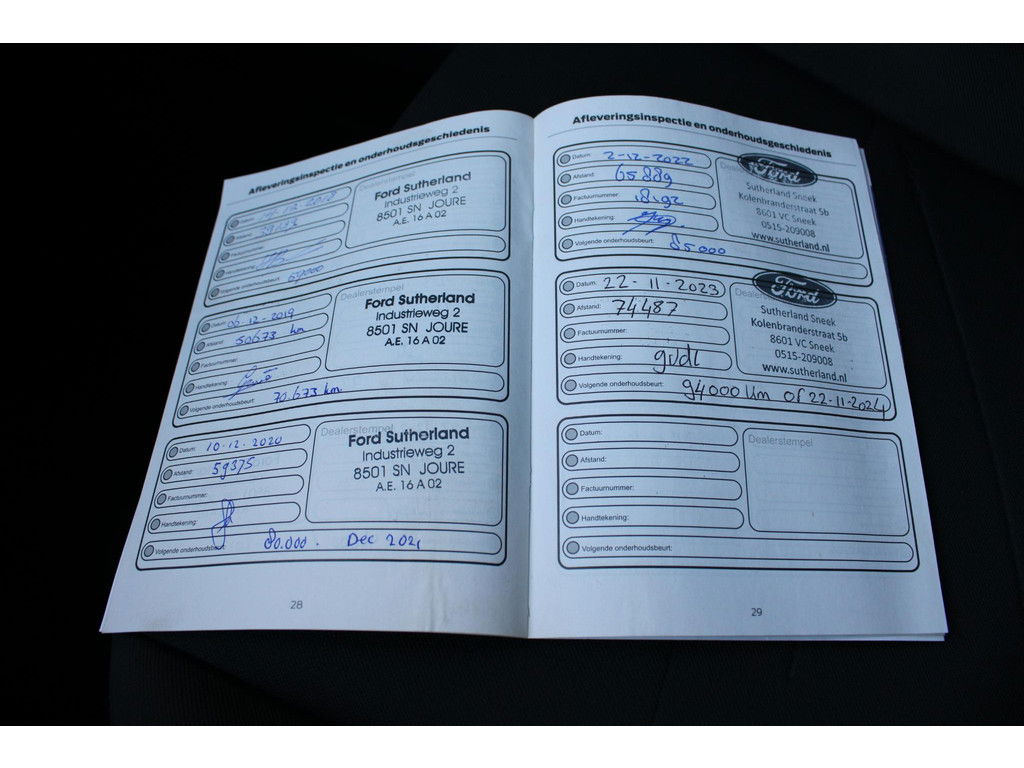 Afleveringsinspectie en onderhoudsgeschiedenis
Datum:
Afstand:
Factuurnummer:
Handtekening:
Volgende onderhoudsbeurt:
Dealerstempel
Ford Sutherland
Industrieweg 2
8501 SN JOURE
A.E. 16 A 02
Datum: 06-12-2019
Afstand: 50673 km
Factuurnummer:
Handtekening:
Volgende onderhoudsbeurt: 70.673 km
Dealerstempel
Ford Sutherland
Industrieweg 2
8501 SN JOURE
A.E. 16 A 02
Datum: 10-12-2020
Afstand: 59375
Factuurnummer:
Handtekening:
Volgende onderhoudsbeurt: 80.000. Dec 2021
Dealerstempel
Ford Sutherland
Industrieweg 2
8501 SN JOURE
A.E. 16 A 02
28
Afleveringsinspectie en onderhoudsgeschiedenis
Datum: 2-12-2022
Afstand: 65889
Factuurnummer:
Handtekening:
Volgende onderhoudsbeurt: 85000
Ford
Sutherland Sneek
Kolenbranderstraat 5b
8601 VC Sneek
0515-209008
www.sutherland.nl
Datum: 22-11-2023
Afstand: 74487
Factuurnummer:
Handtekening: gvdl
Volgende onderhoudsbeurt: 94000 km of 22-11-2024
Ford
Sutherland Sneek
Kolenbranderstraat 5b
8601 VC Sneek
0515-209008
www.sutherland.nl
Datum:
Afstand:
Factuurnummer:
Handtekening:
Volgende onderhoudsbeurt:
Dealerstempel
29